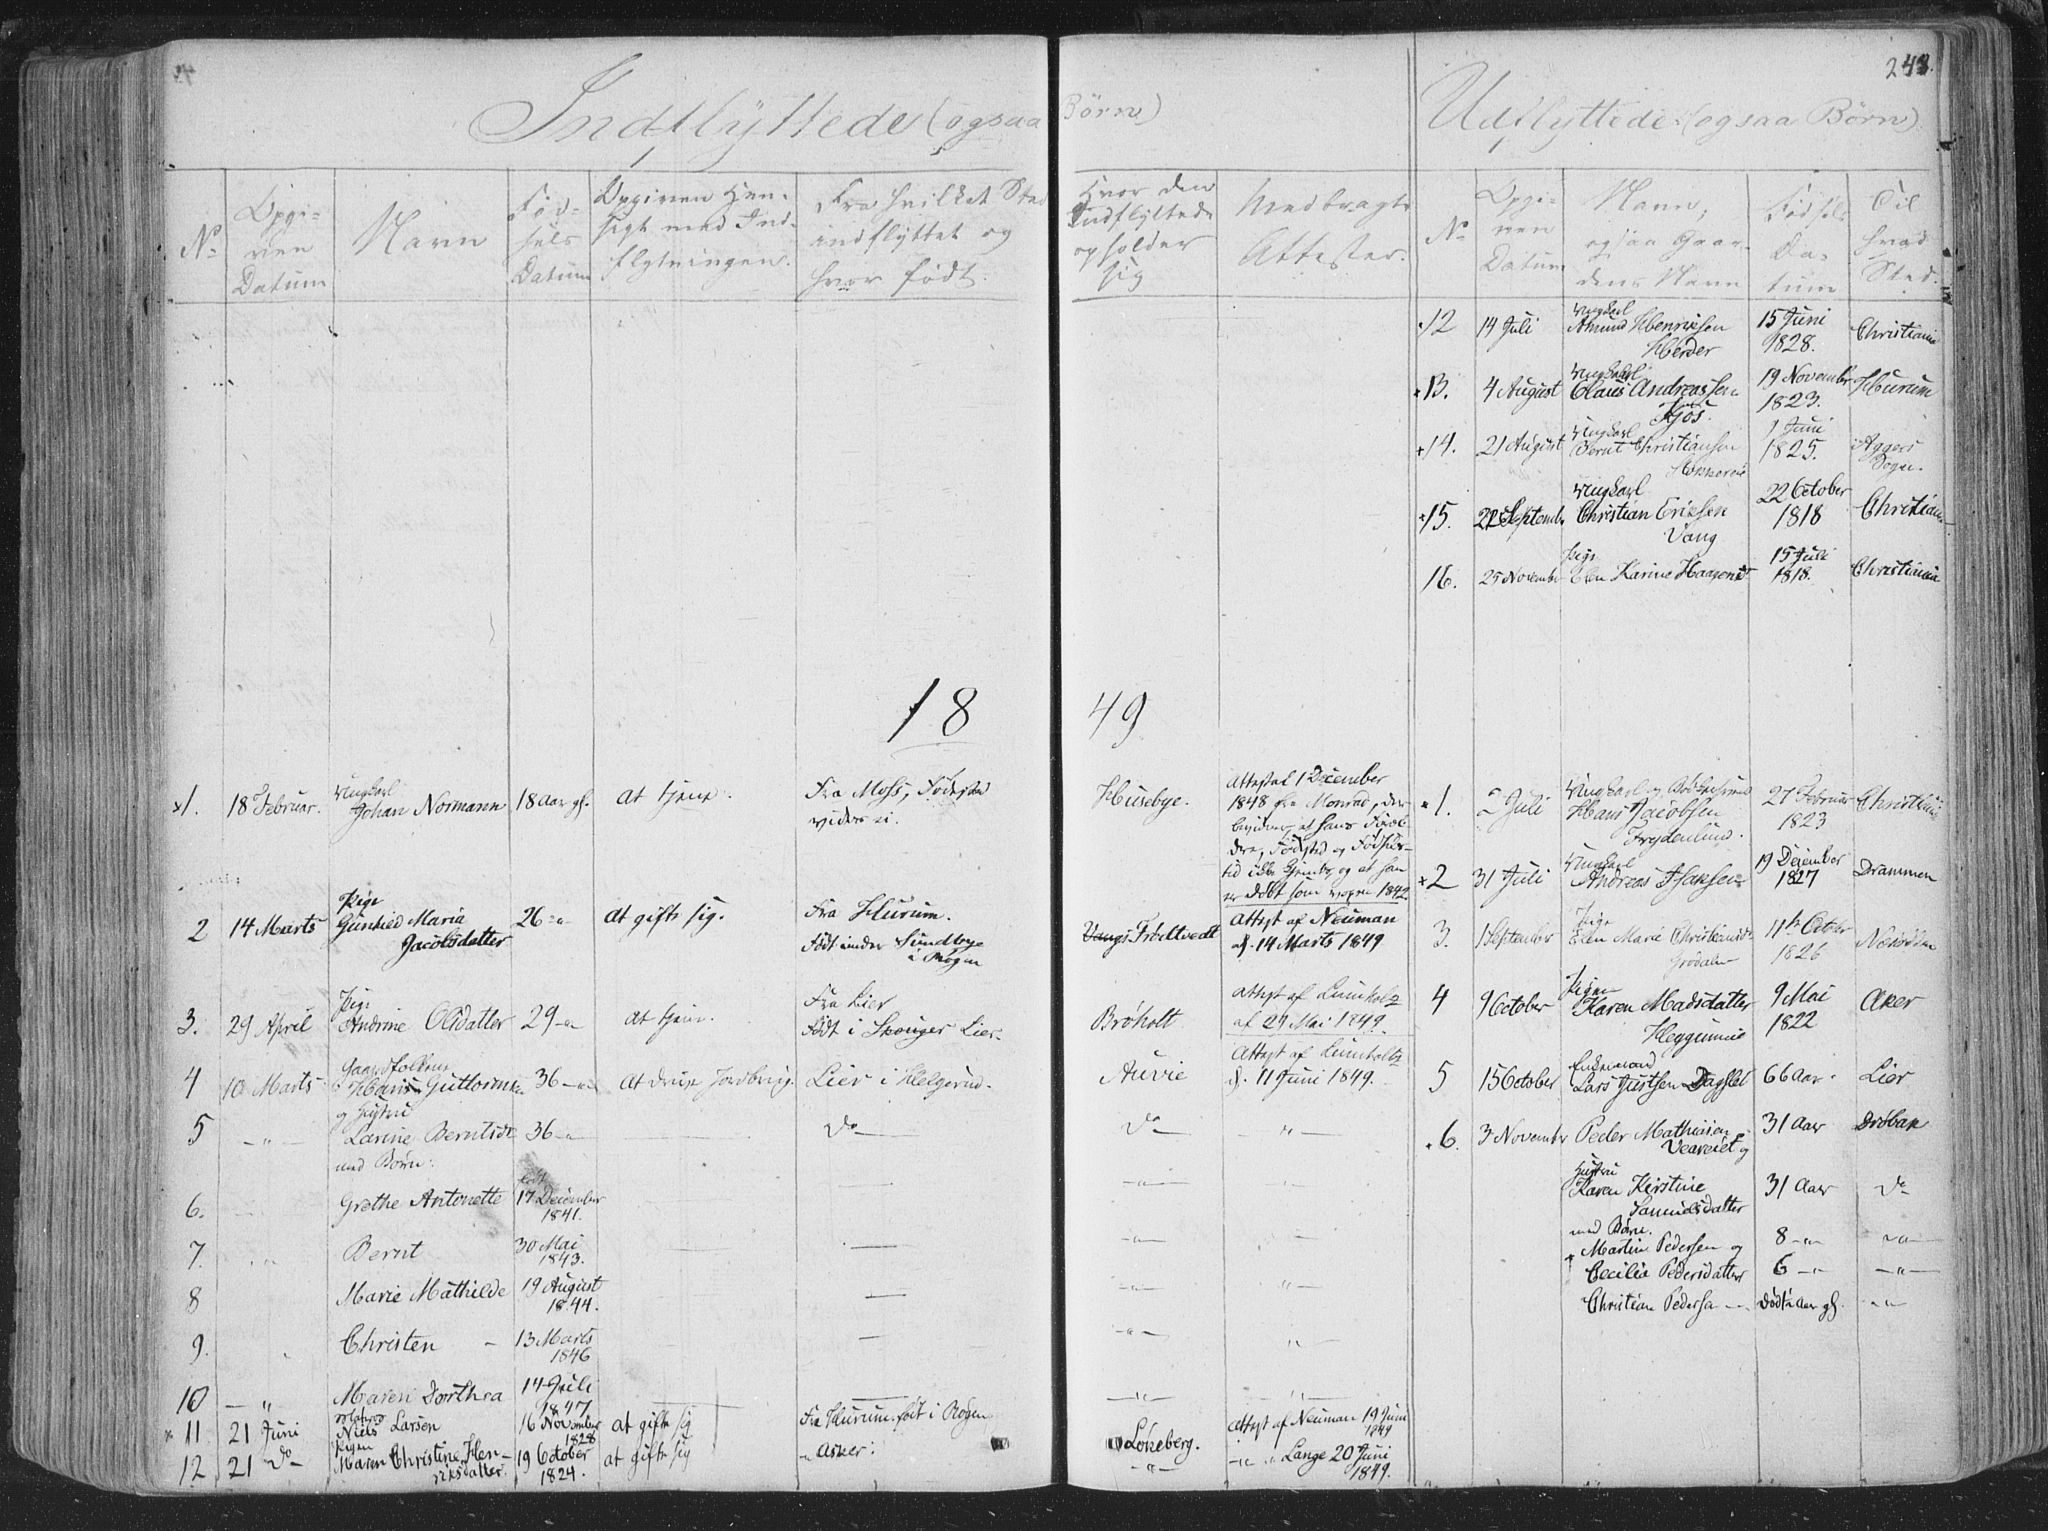 248.
Indflyttede (ogsaa Børn)
Udflyttede (ogsaa Børn)
No
Opgiven Datum
Navn
Fødsels Datum
Opgiven Hensigt med Indflytningen.
Fra hvilket Sted indflyttet og hvor født.
Hvor den Indflyttede opholder sig
Medbragte Attester.
No
Opgiven Datum
Navn, ogsaa Gaardens Navn
Fødsels Datum
Til hvad Sted.
12 14 Juli Ungkarl Amund Henriksen Herder 15 Juni 1828. Christiania
13. 4 August Ungkarl Claus Andreassen Gjøs. 19 November 1823. Hurum
14. 21 August Ungkarl Bernt Christiansen 1 Juni 1825. Aggers Sogn.
15. September Ungkarl Christian Ericsen Vang 22 October 1818 Christiania
16. 25 November Pige Elen Karine Haagensd. 15 Juli 1818. Christiania
18 49
1. 18 Februar. Ungkarl Johan Normann 18 Aar gl. at tjene. Fra Moss, Fødested vides ei. Husebye. Attest af 1 December 1848 fra Monrad, der bevidner, at hans Fødested og Fødselstid ikke og at han er døbt som voxen 1842
2 14 Marts Pige Gunhild Maria Jacobsdatter 26 -"- at gifte sig. Fra Hurum. Født under Sundbye i Røgen Trødtvedt Attest af Neuman af 14 Marts 1849
3. 29 April Pige Andrine Olsdatter 29 -"- at tjene. Fra Lier Født i Skouger Lier. Brøholt Attest af Lumholtz af 29 Mai 1849.
4 10 Marts Gaardfolkene Hans Guttormsen 36 -"- at drive Jordbrug. Lier i Helgerud. Auvie Attest af Lumholtz af 11 Juni 1849.
5 -"- og Hustru Larine Berntsdt. 36 -"- Do Do -"-
med Børn:
6. Grethe Antonette født 17 December 1841.
7. Bernt 30 Mai 1843.
8 Marie Mathilde 19 August 1844.
9. Christen 13 Marts 1846
10 -"- Maren Dorthea 14 Juli 1847.
11 21 Juni Niels Larsen 16 November 1828 at gifte sig Fra Hurum. født i Røgen. Løkeberg. Attest af Neuman 19 Juni 1849
12 21 Do Pigen Maren Christine Henriksdatter. 19 October 1824. at gifte sig " Asker. -"- -"- Lange 20 Juni 1849.
1. 2 Juli Ungkarl og Hans Jacobsen Frydenlund. 27 Februar 1823 Christiania
2 31 Juli Ungkarl Andreas Isaksen 19 December 1827 Drammen
3. 1 September Pige Elen Marie Christiansdt. Grødalen 11te October 1826 Nesodden
4 9 October Pigen Karen Madsdatter Heggumlie 9 Mai 1822 Aker
5 15 October Enkemand Lars Justsen Dagslet 66 Aar Lier
6. 3 November Peder Mathisen og 31 Aar Drøbak
Hustru Karen Kirstine Samuelsdatter 31 Aar Do
med Børn.
Martin Pedersen og 8 -"- -"-
Cecilia Pedersdatter 6 -"- -"-
Christian Pedersen -"-